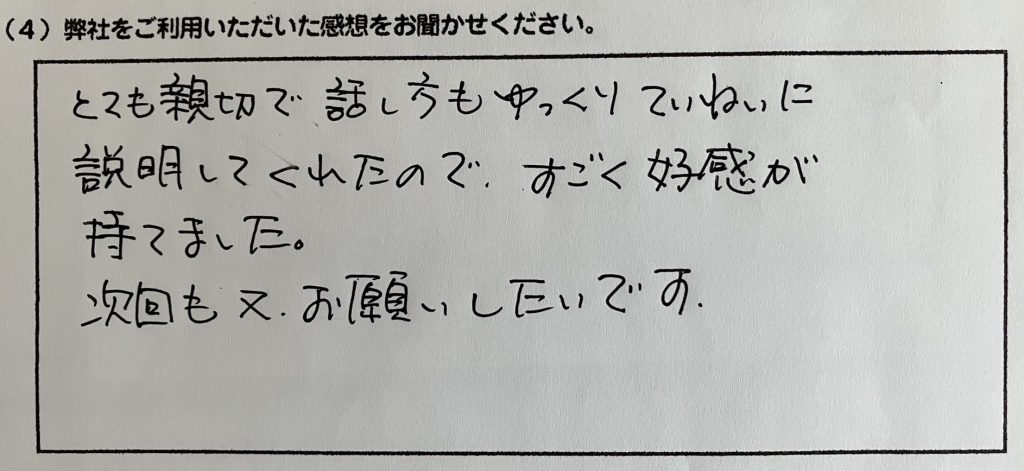 (4) 弊社をご利用いただいた感想をお聞かせください。
とても親切で 話し方もゆっくりていねいに
説明してくれたので、すごく好感が
持てました。
次回も又、お願いしたいです.